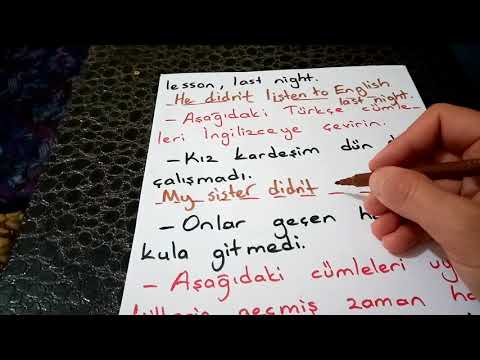 lesson, last night.
He didn't listen to English
last night.
- Aşağıdaki Türkçe cümle-
leri İngilizceye çevirin.
- Kız kardeşim dün
çalışmadı.
My sister didn't
- Onlar geçen
kula gitmedi.
- Aşağıdaki cümleleri
geçmiş zaman